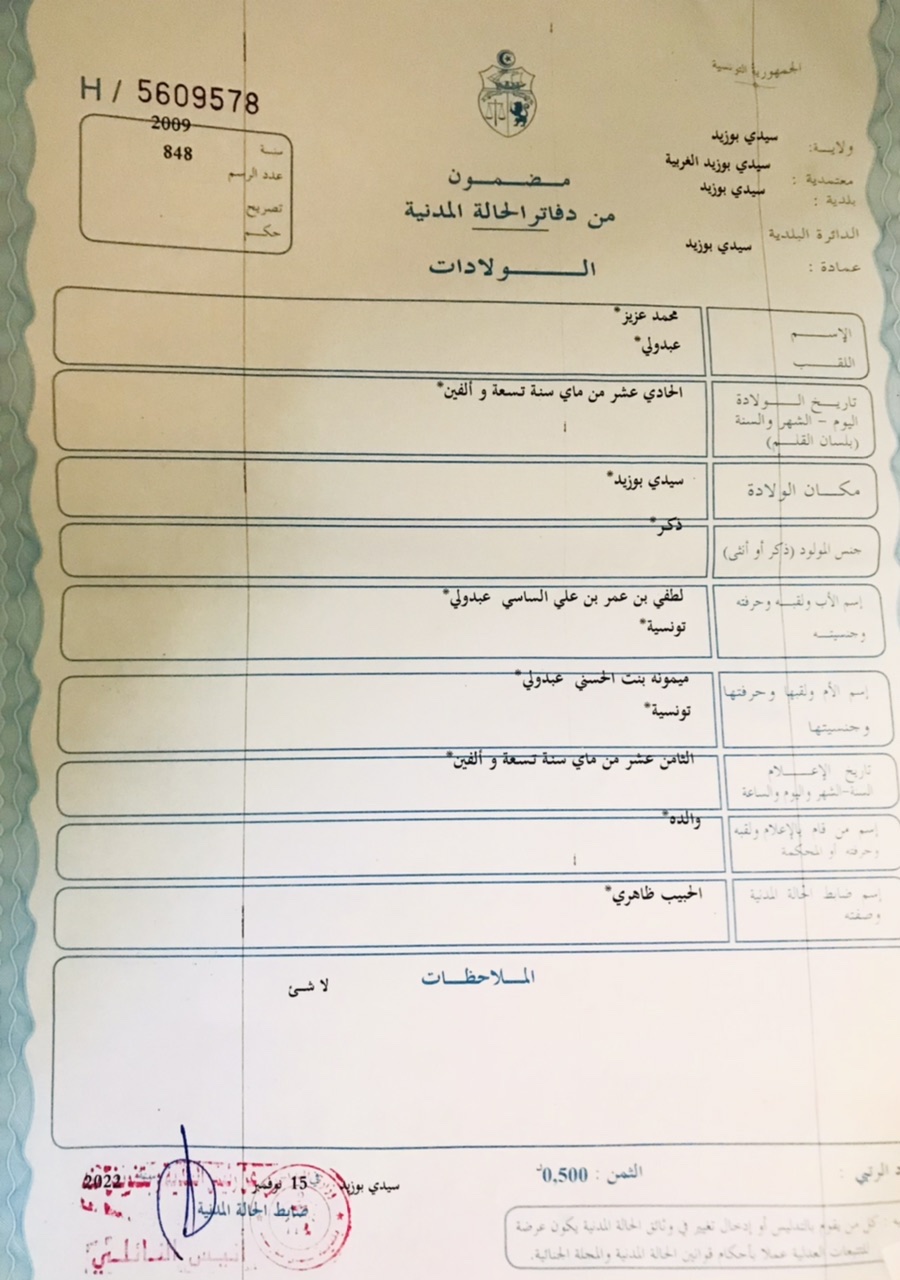 الجمهورية التونسية
H / 5609578
ولاية: سيدي بوزيد
معتمدية : سيدي بوزيد الغربية
بلدية : سيدي بوزيد
الدائرة البلدية سيدي بوزيد
عمادة :
سنة 2009
عدد الرسم 848
تصريح
حكم
مضمون
من دفاتر الحالة المدنية
الولادات
الإسم محمد عزيز*
اللقب عبدولي*
تاريخ الولادة الحادي عشر من ماي سنة تسعة و ألفين*
اليوم - الشهر والسنة
(بلسان القلم)
مكان الولادة سيدي بوزيد*
جنس المولود (ذكر أو أنثى) ذكر*
إسم الأب ولقبه وحرفته لطفي بن عمر بن علي الساسي عبدولي*
وجنسيته تونسية*
إسم الأم ولقبها وحرفتها ميمونه بنت الحسني عبدولي*
وجنسيتها تونسية*
تاريخ الإعلام الثامن عشر من ماي سنة تسعة و ألفين*
السنة-الشهر واليوم والساعة
إسم من قام بالإعلام ولقبه والده*
وحرفته أو المحكمة
إسم ضابط الحالة المدنية الحبيب ظاهري*
وصفته
الملاحظات
لا شئ
الرتبي :
الثمن : 0,500د
سيدي بوزيد في 15 نوفمبر 2022
ضابط الحالة المدنية
كل من يقوم بالتدليس أو إدخال تغيير في وثائق الحالة المدنية يكون عرضة
للتتبعات العدلية عملا بأحكام قوانين الحالة المدنية والمجلة الجنائية.